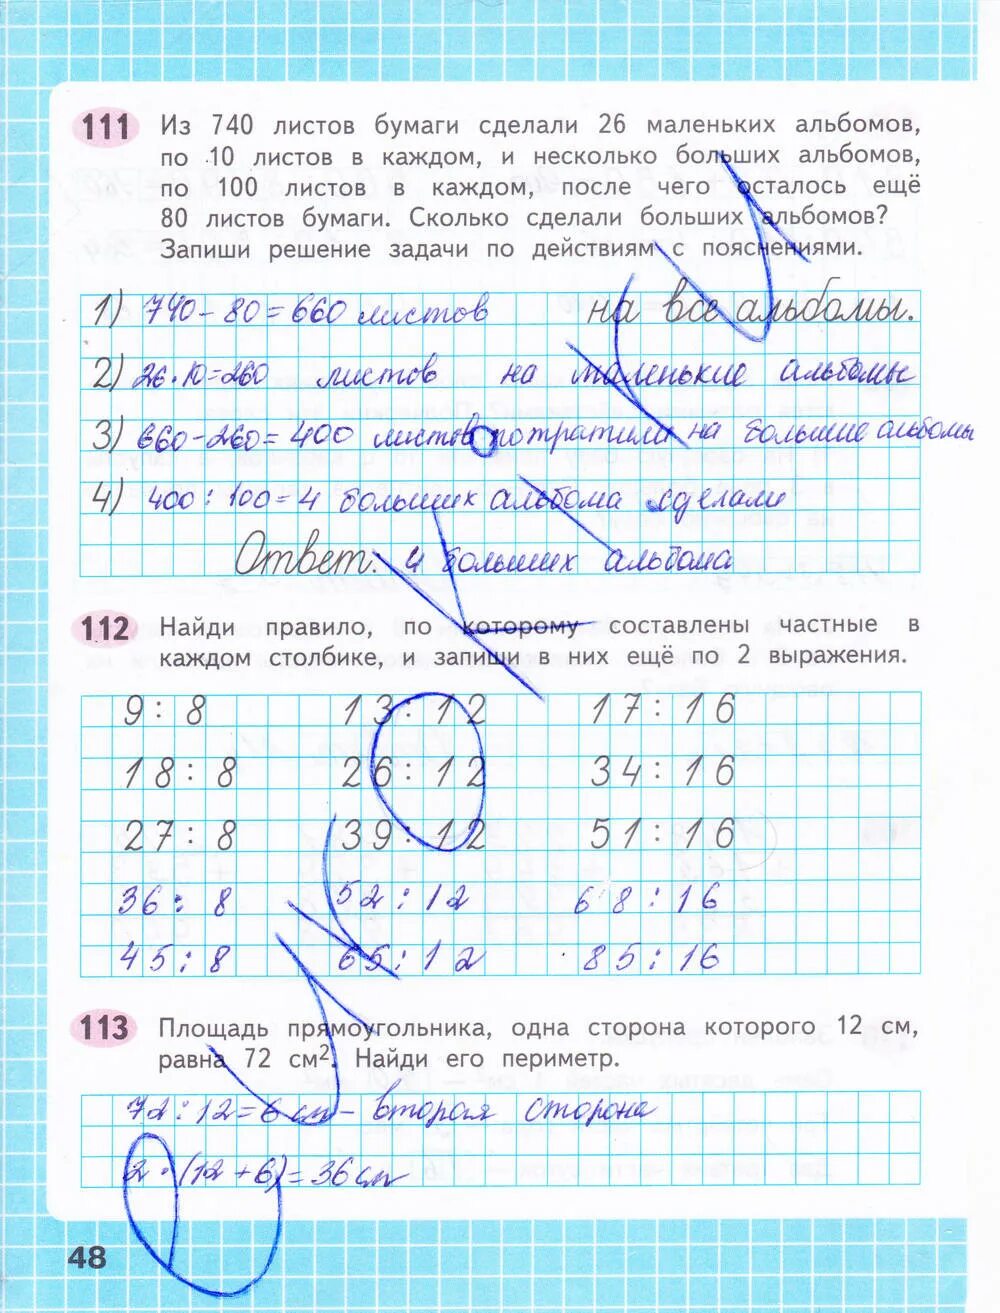 111 Из 740 листов бумаги сделали 26 маленьких альбомов,
по 10 листов в каждом, и несколько больших альбомов,
по 100 листов в каждом, после чего осталось ещё
80 листов бумаги. Сколько сделали больших альбомов?
Запиши решение задачи по действиям с пояснениями.
1) 740 - 80 = 660 листов на все альбомы.
2) 26 · 10 = 260 листов на маленькие альбомы
3) 660 - 260 = 400 листов потратили на большие альбомы
4) 400 : 100 = 4 больших альбома сделали
Ответ: 4 больших альбома
112 Найди правило, по которому составлены частные в
каждом столбике, и запиши в них ещё по 2 выражения.
9 : 8 13 : 12 17 : 16
18 : 8 26 : 12 34 : 16
27 : 8 39 : 12 51 : 16
36 : 8 52 : 12 68 : 16
45 : 8 65 : 12 85 : 16
113 Площадь прямоугольника, одна сторона которого 12 см,
равна 72 см². Найди его периметр.
72 : 12 = 6 см - вторая сторона
2 · (12 + 6) = 36 см
48